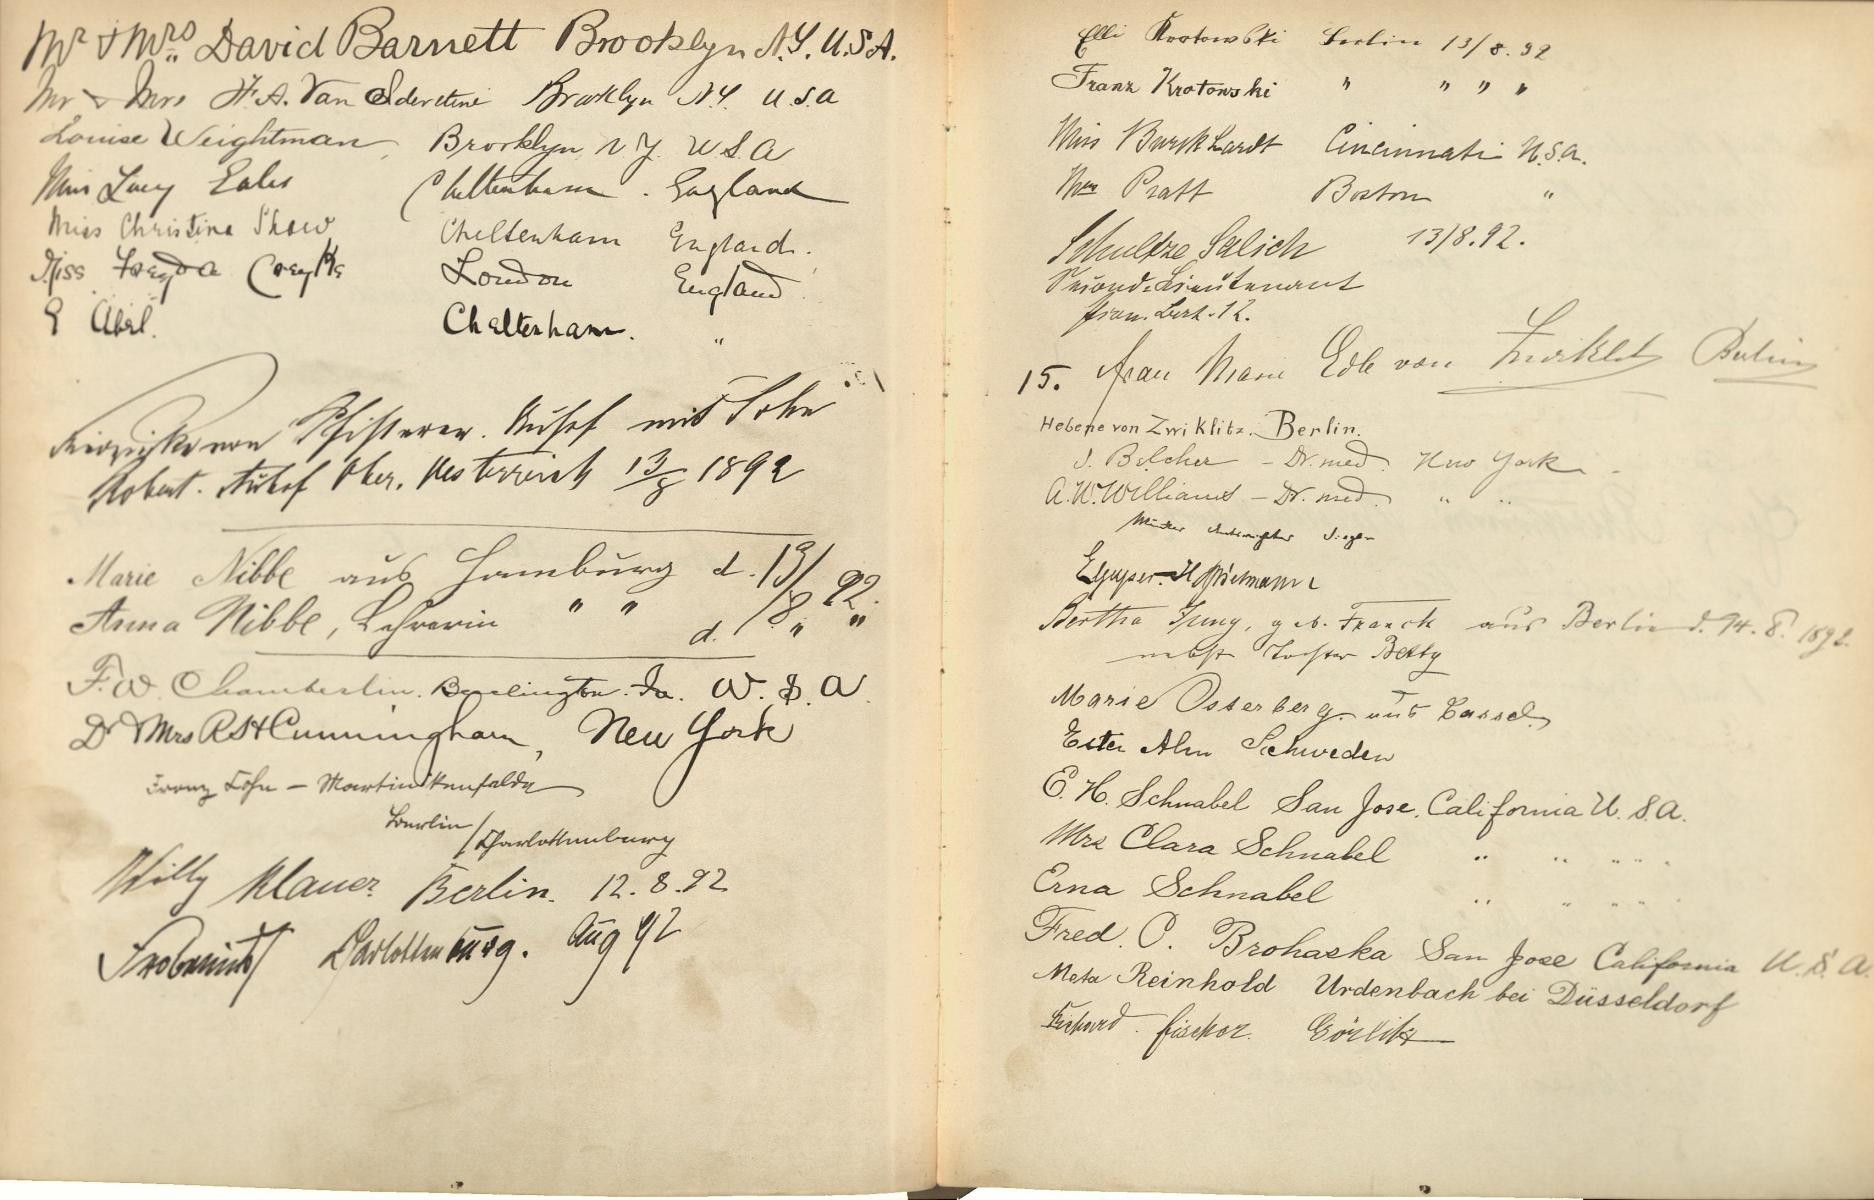 Mr & Mrs David Barnett Brooklyn N.Y. U.S.A.
Mr & Mrs F. A. Van Iderstine Brooklyn N.Y. U.S.A
Louise Weightman, Brooklyn N Y. U S A
Miss Lucy Eales Cheltenham. England
Miss Christina Shaw Cheltenham England.
Miss Freyda Creyke London England
E Abel. Cheltenham. "
Pfisterer. mit Sohn
Robert. Ober. Oesterreich 13/8 1892
Marie Nibbe aus Hamburg d. 13/8 92.
Anna Nibbe, Lehrerin " " d. " "
F. W. Chamberlin. Burlington. Ia. U. S. A.
Dr & Mrs R S H Cunningham, New York
Franz Cohn – Martinikenfelde
Berlin/Charlottenburg
Willy Klauer. Berlin. 12.8.92
Frobenius Charlottenburg. Aug 92
Elli Krotowski Berlin 13/8.92
Franz Krotowski " " " "
Miss Burckhardt Cincinnati U.S.A.
Mrs Pratt Boston "
Schultze Salich 13/8.92.
Second-Lieutenant
15. Frau Marie Edle von Zwiklitz Berlin
Helene von Zwiklitz. Berlin.
J. Belcher – Dr. med. New York.
A. W. Williams – Dr. med. " "
Bertha Jung, geb. Franck aus Berlin d. 14. 8. 1892.
nebst Tochter Betty
Marie Osterberg aus Cassel.
Ester Alm Schweden
E. H. Schnabel San Jose, California U. S. A.
Mrs Clara Schnabel " " " "
Erna Schnabel " " " "
Fred. C. Brohaska San Jose California U. S. A.
Meta Reinhold Urdenbach bei Düsseldorf
Richard Fischer. Görlitz